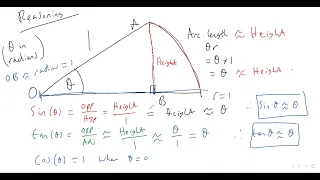 Reasoning
(θ in radians)
OB ≈ radius = 1
1
A
O
θ
B
Height
r = 1
Arc length ≈ Height
θr
= θ × 1
= θ ≈ Height
Sin(θ) = Opp/Hyp = Height/1 = Height ≈ θ ∴ Sin θ ≈ θ
tan(θ) = Opp/Adj ≈ Height/1 ≈ θ/1 = θ ∴ tan θ ≈ θ
Cos(θ) = 1 when θ=0